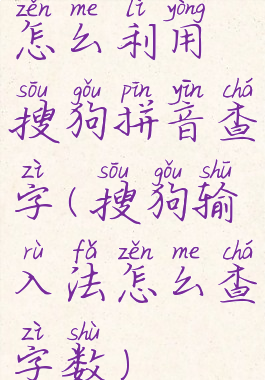 zěn me lì yòng
怎么利用
sōu gǒu pīn yīn chá
搜狗拼音查
zì sōu gǒu shū
字(搜狗输
rù fǎ zěn me chá
入法怎么查
zì shù
字数)